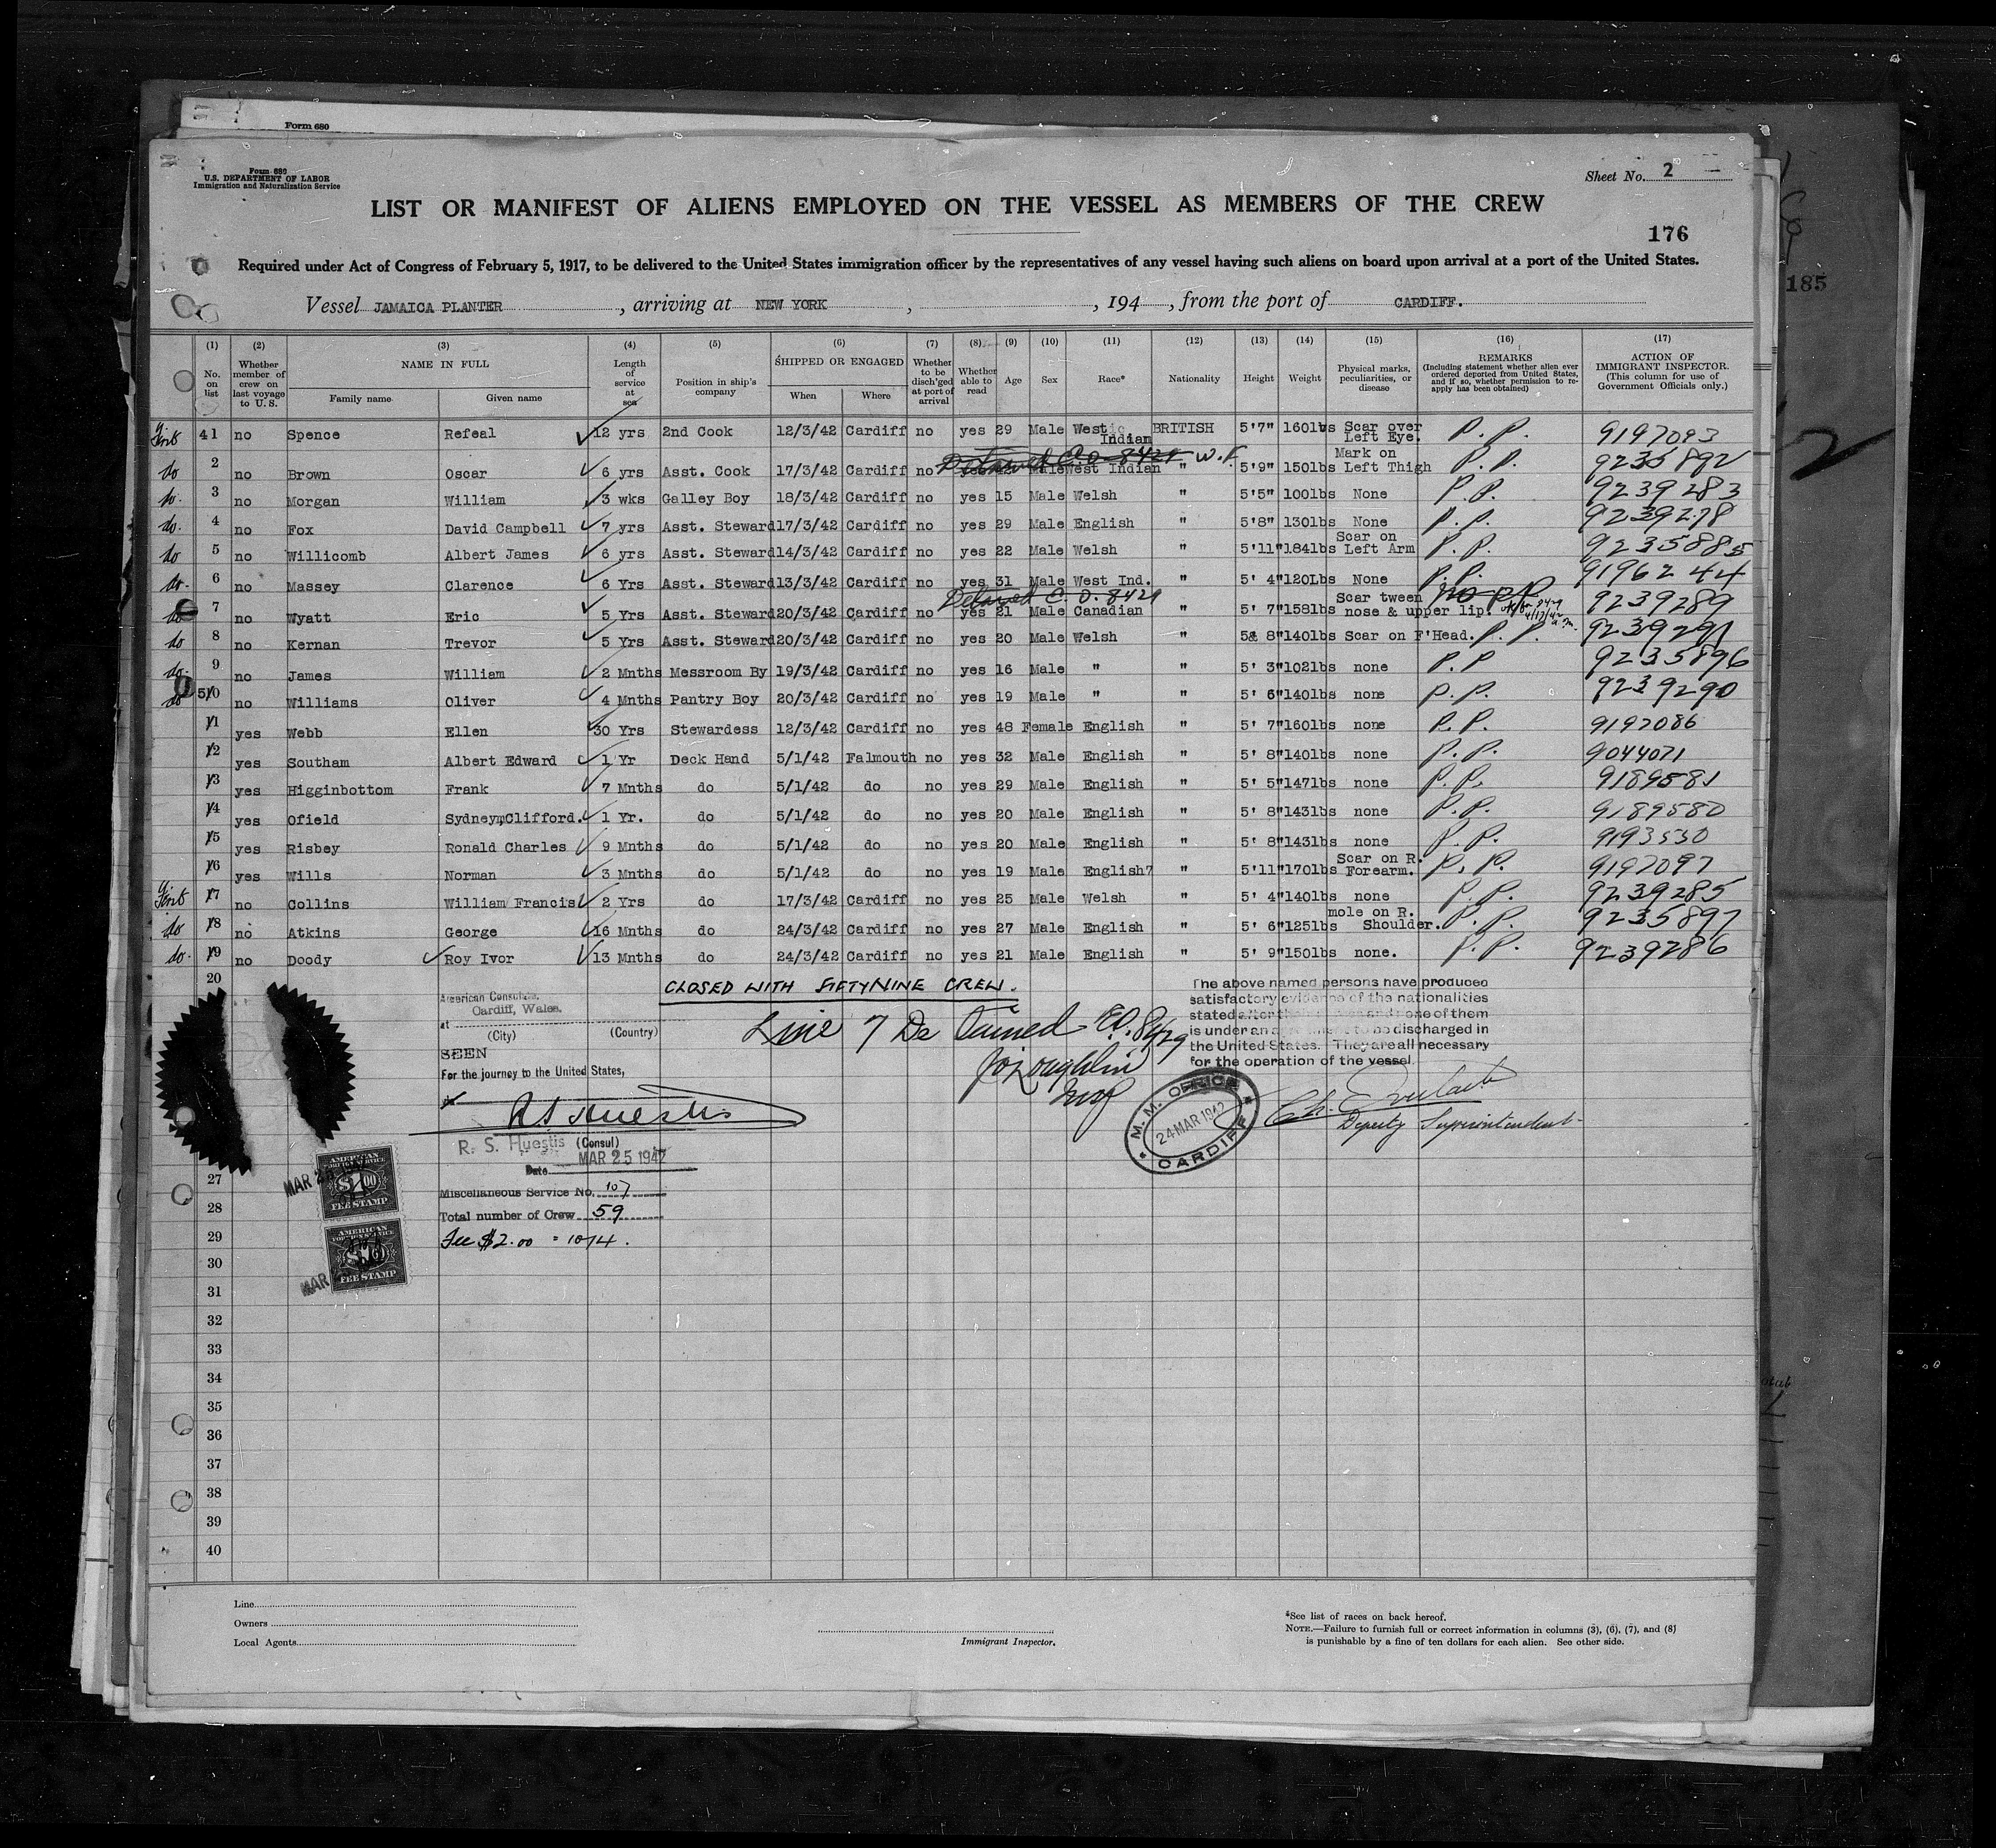 Form 680
Form 680
U.S. DEPARTMENT OF LABOR
Immigration and Naturalization Service
Sheet No. 2
LIST OR MANIFEST OF ALIENS EMPLOYED ON THE VESSEL AS MEMBERS OF THE CREW
176
185
Required under Act of Congress of February 5, 1917, to be delivered to the United States immigration officer by the representatives of any vessel having such aliens on board upon arrival at a port of the United States.
Vessel JAMAICA PLANTER, arriving at NEW YORK, , 194 , from the port of CARDIFF.
(1) (2) (3) (4) (5) (6) (7) (8) (9) (10) (11) (12) (13) (14) (15) (16) (17)
No. on list
Whether member of crew on last voyage to U. S.
NAME IN FULL
Family name
Given name
Length of service at sea
Position in ship's company
SHIPPED OR ENGAGED
When
Where
Whether to be disch'ged at port of arrival
Whether able to read
Age
Sex
Race*
Nationality
Height
Weight
Physical marks, peculiarities, or disease
REMARKS
(Including statement whether alien ever ordered deported from United States, and if so, whether permission to re-apply has been obtained)
ACTION OF IMMIGRANT INSPECTOR.
(This column for use of Government Officials only.)
41 no Spence Refeal 12 yrs 2nd Cook 12/3/42 Cardiff no yes 29 Male West Indian BRITISH 5'7" 160lbs Scar over Left Eye. P.P. 9197093
do 2 no Brown Oscar 6 yrs Asst. Cook 17/3/42 Cardiff no Male West Indian " 5'9" 150lbs Mark on Left Thigh P.P. 9235892
3 no Morgan William 3 wks Galley Boy 18/3/42 Cardiff no yes 15 Male Welsh " 5'5" 100lbs None P.P. 9239283
do. 4 no Fox David Campbell 7 yrs Asst. Steward 17/3/42 Cardiff no yes 29 Male English " 5'8" 130lbs None P.P. 9239278
do 5 no Willicomb Albert James 6 yrs Asst. Steward 14/3/42 Cardiff no yes 22 Male Welsh " 5'11" 184lbs Scar on Left Arm P.P. 9235885
do. 6 no Massey Clarence 6 Yrs Asst. Steward 13/3/42 Cardiff no yes 31 Male West Ind. " 5' 4" 120Lbs None P.P. 9196244
Detained E.O. 8429
do 7 no Wyatt Eric 5 Yrs Asst. Steward 20/3/42 Cardiff no yes 21 Male Canadian " 5' 7" 158lbs Scar tween nose & upper lip. no PP 9239289
do 8 no Kernan Trevor 5 Yrs Asst. Steward 20/3/42 Cardiff no yes 20 Male Welsh " 5' 8" 140lbs Scar on F'Head. P.P. 9239291
do. 9 no James William 2 Mnths Messroom By 19/3/42 Cardiff no yes 16 Male " " 5' 3" 102lbs none P.P 9235896
do 50 no Williams Oliver 4 Mnths Pantry Boy 20/3/42 Cardiff no yes 19 Male " " 5' 6" 140lbs none P.P. 9239290
11 yes Webb Ellen 30 Yrs Stewardess 12/3/42 Cardiff no yes 48 Female English " 5' 7" 160lbs none P.P. 9197086
12 yes Southam Albert Edward 1 Yr Deck Hand 5/1/42 Falmouth no yes 32 Male English " 5' 8" 140lbs none P.P. 9044071
13 yes Higginbottom Frank 7 Mnths do 5/1/42 do no yes 29 Male English " 5' 5" 147lbs none P.P. 9189581
14 yes Ofield Sydney,Clifford. 1 Yr. do 5/1/42 do no yes 20 Male English " 5' 8" 143lbs none P.P. 9189580
15 yes Risbey Ronald Charles 9 Mnths do 5/1/42 do no yes 20 Male English " 5' 8" 143lbs none P.P. 9193530
16 yes Wills Norman 3 Mnths do 5/1/42 do no yes 19 Male English7 " 5'11" 170lbs Scar on R. Forearm. P.P. 9197097
17 no Collins William Francis 2 Yrs do 17/3/42 Cardiff no yes 25 Male Welsh " 5' 4" 140lbs none P.P. 9239285
do 18 no Atkins George 16 Mnths do 24/3/42 Cardiff no yes 27 Male English " 5' 6" 125lbs mole on R. Shoulder. P.P. 9235897
do. 19 no Doody Roy Ivor 13 Mnths do 24/3/42 Cardiff no yes 21 Male English " 5' 9" 150lbs none. P.P. 9239286
20
CLOSED WITH FIFTYNINE CREW.
Line 7 Detained E.O. 8429
The above named persons have produced
satisfactory evidence of the nationalities
stated after their and none of them
is under an to be discharged in
the United States. They are all necessary
for the operation of the vessel.
Deputy Superintendent
M. M. OFFICE
24 MAR 1942
CARDIFF
American Consulate,
Cardiff, Wales.
at
(City) (Country)
SEEN
For the journey to the United States,
R. S. Huestis (Consul)
Date MAR 25 1942
Miscellaneous Service No. 107
Total number of Crew 59
Fee $2.00 = 10/4.
AMERICAN
FEE STAMP
AMERICAN
FEE STAMP
27
28
29
30
31
32
33
34
35
36
37
38
39
40
Line
Owners
Local Agents
Immigrant Inspector.
*See list of races on back hereof.
NOTE.—Failure to furnish full or correct information in columns (3), (6), (7), and (8)
is punishable by a fine of ten dollars for each alien. See other side.